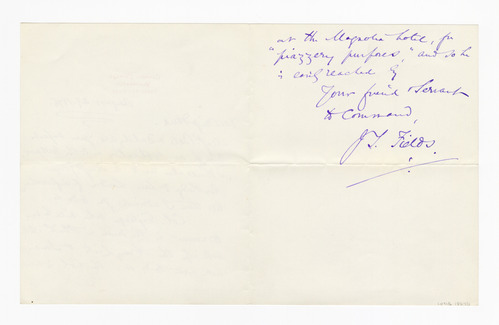 at the Magnolia hotel, for
"piazzery purposes," and so he
is easily reached by
Your friend & Servant
to Command,
J. T. Fields.